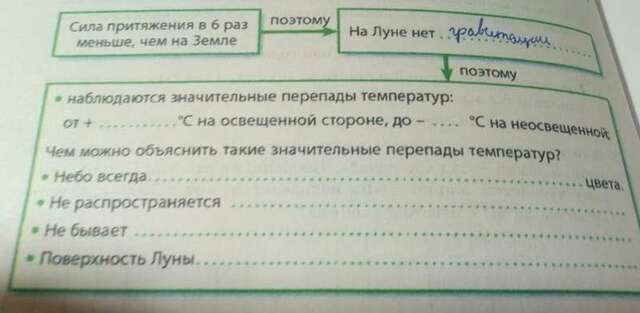 Сила притяжения в 6 раз
меньше, чем на Земле
поэтому
На Луне нет гравитации
поэтому
• наблюдаются значительные перепады температур:
от + ............°С на освещенной стороне, до – .... °С на неосвещенной.
Чем можно объяснить такие значительные перепады температур?
• Небо всегда............................................................цвета.
• Не распространяется ............................................................
• Не бывает ............................................................
• Поверхность Луны............................................................